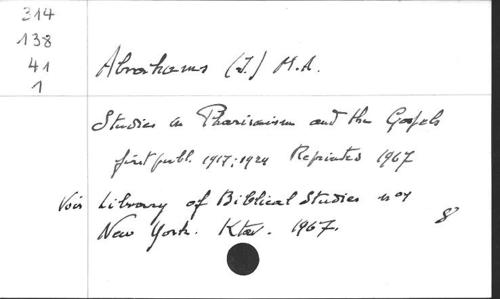 314
138
41
1
Abrahams (I.) M.A.
Studies in Pharisaism and the Gospels
first publ. 1917; 1924 Reprinted 1967
Voir Library of Biblical Studies
New York. Ktav. 1967. 8